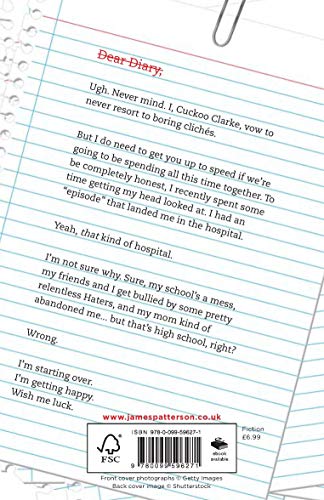 Dear Diary,
Ugh. Never mind. I, Cuckoo Clarke, vow to
never resort to boring clichés.
But I do need to get you up to speed if we're
going to be spending all this time together. To
be completely honest, I recently spent some
time getting my head looked at. I had an
"episode" that landed me in the hospital.
Yeah, that kind of hospital.
I'm not sure why. Sure, my school's a mess,
my friends and I get bullied by some pretty
relentless Haters, and my mom kind of
abandoned me... but that's high school, right?
Wrong.
I'm starting over.
I'm getting happy.
Wish me luck.
www.jamespatterson.co.uk
Fiction
£6.99
ISBN 978-0-099-59627-1
FSC
ebook
available
9 780099 596271
Front cover photographs © Getty Images
Back cover image © Shutterstock